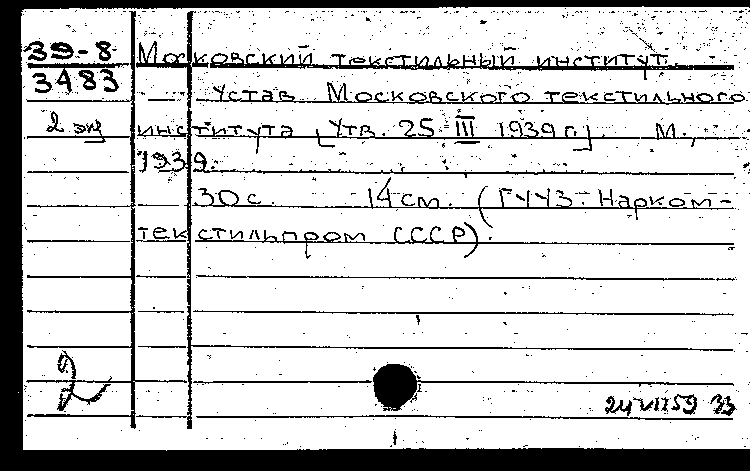 39-8 Московский текстильный институт.
3483 Устав Московского текстильного
2 экз института [Утв. 25 III 1939 г.]. М.,
1939.
30 с. 14 см. (ГУУЗ-Нарком-
текстильпром СССР).
2
59 33